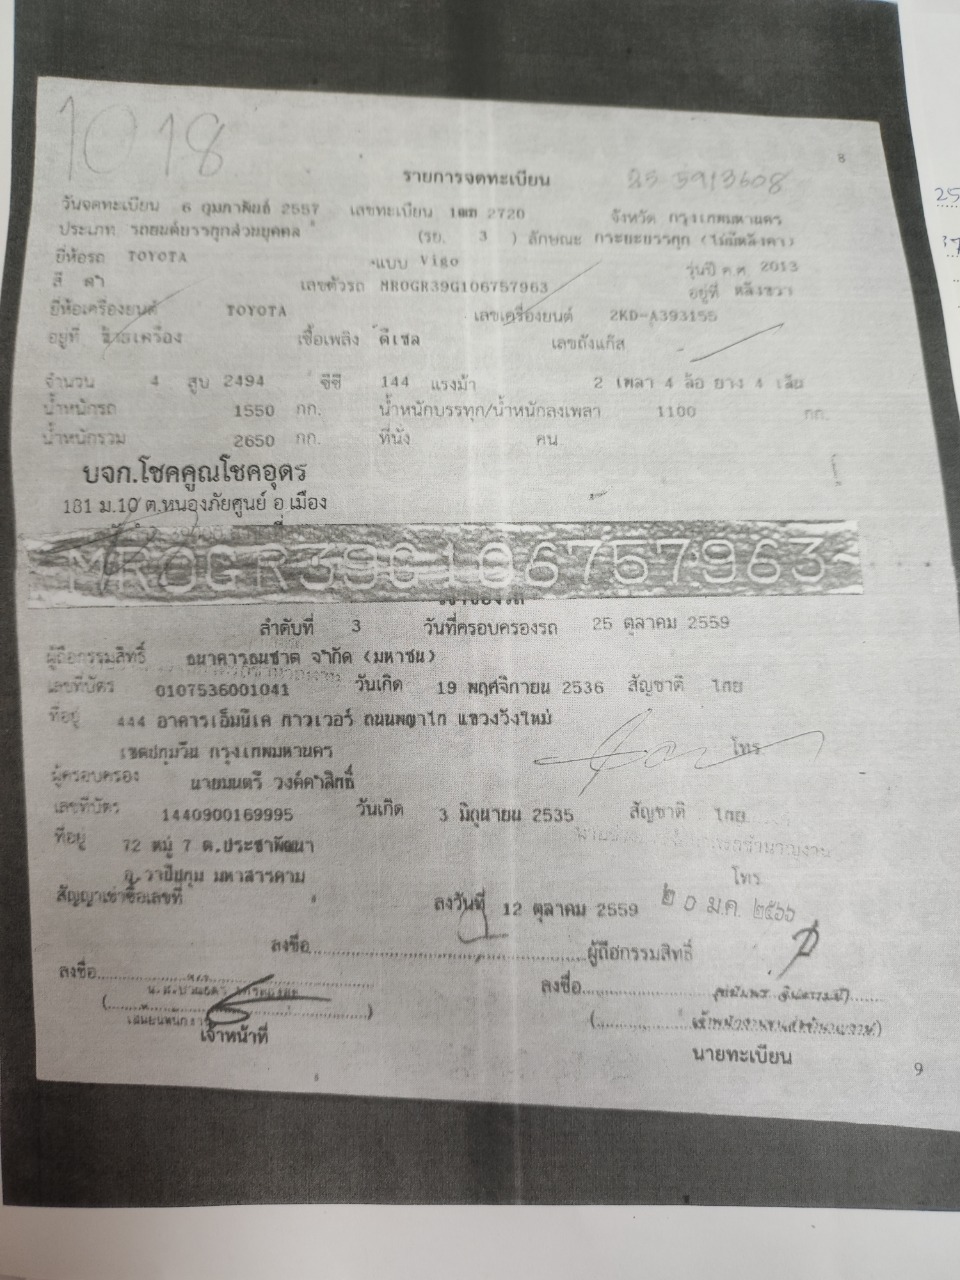 1018
8
รายการจดทะเบียน
วันจดทะเบียน 6 กุมภาพันธ์ 2557 เลขทะเบียน 2720 จังหวัด กรุงเทพมหานคร
ประเภท รถยนต์บรรทุกส่วนบุคคล (รย. 3 ) ลักษณะ กระบะบรรทุก (ไม่มีหลังคา)
ยี่ห้อรถ TOYOTA แบบ Vigo รุ่นปี ค.ศ. 2013
สี ดำ เลขตัวรถ MR0GR39G106757963 อยู่ที่ หลังขวา
ยี่ห้อเครื่องยนต์ TOYOTA เลขเครื่องยนต์ 2KD-A393155
อยู่ที่ ข้างเครื่อง เชื้อเพลิง ดีเซล เลขถังแก๊ส
จำนวน 4 สูบ 2494 ซีซี 144 แรงม้า 2 เพลา 4 ล้อ ยาง 4 เส้น
น้ำหนักรถ 1550 กก. น้ำหนักบรรทุก/น้ำหนักลงเพลา 1100 กก.
น้ำหนักรวม 2650 กก. ที่นั่ง คน
บจก.โชคคูณโชคอุดร
181 ม.10 ต.หนองภัยศูนย์ อ.เมือง
MR0GR39G106757963
เจ้าของรถ
ลำดับที่ 3 วันที่ครอบครองรถ 25 ตุลาคม 2559
ผู้ถือกรรมสิทธิ์ ธนาคารธนชาต จำกัด (มหาชน)
เลขที่บัตร 0107536001041 วันเกิด 19 พฤศจิกายน 2536 สัญชาติ ไทย
ที่อยู่ 444 อาคารเอ็มบีเค ทาวเวอร์ ถนนพญาไท แขวงวังใหม่
เขตปทุมวัน กรุงเทพมหานคร โทร
ผู้ครอบครอง นายมนตรี วงค์คำสิทธิ์
เลขที่บัตร 1440900169995 วันเกิด 3 มิถุนายน 2535 สัญชาติ ไทย
ที่อยู่ 72 หมู่ 7 ต.ประชาพัฒนา
อ.วาปีปทุม มหาสารคาม โทร
สัญญาเช่าซื้อเลขที่ ลงวันที่ 12 ตุลาคม 2559 ๒๐ ม.ค. ๒๕๖๖
ลงชื่อ ผู้ถือกรรมสิทธิ์
ลงชื่อ ลงชื่อ
เจ้าหน้าที่ นายทะเบียน
9